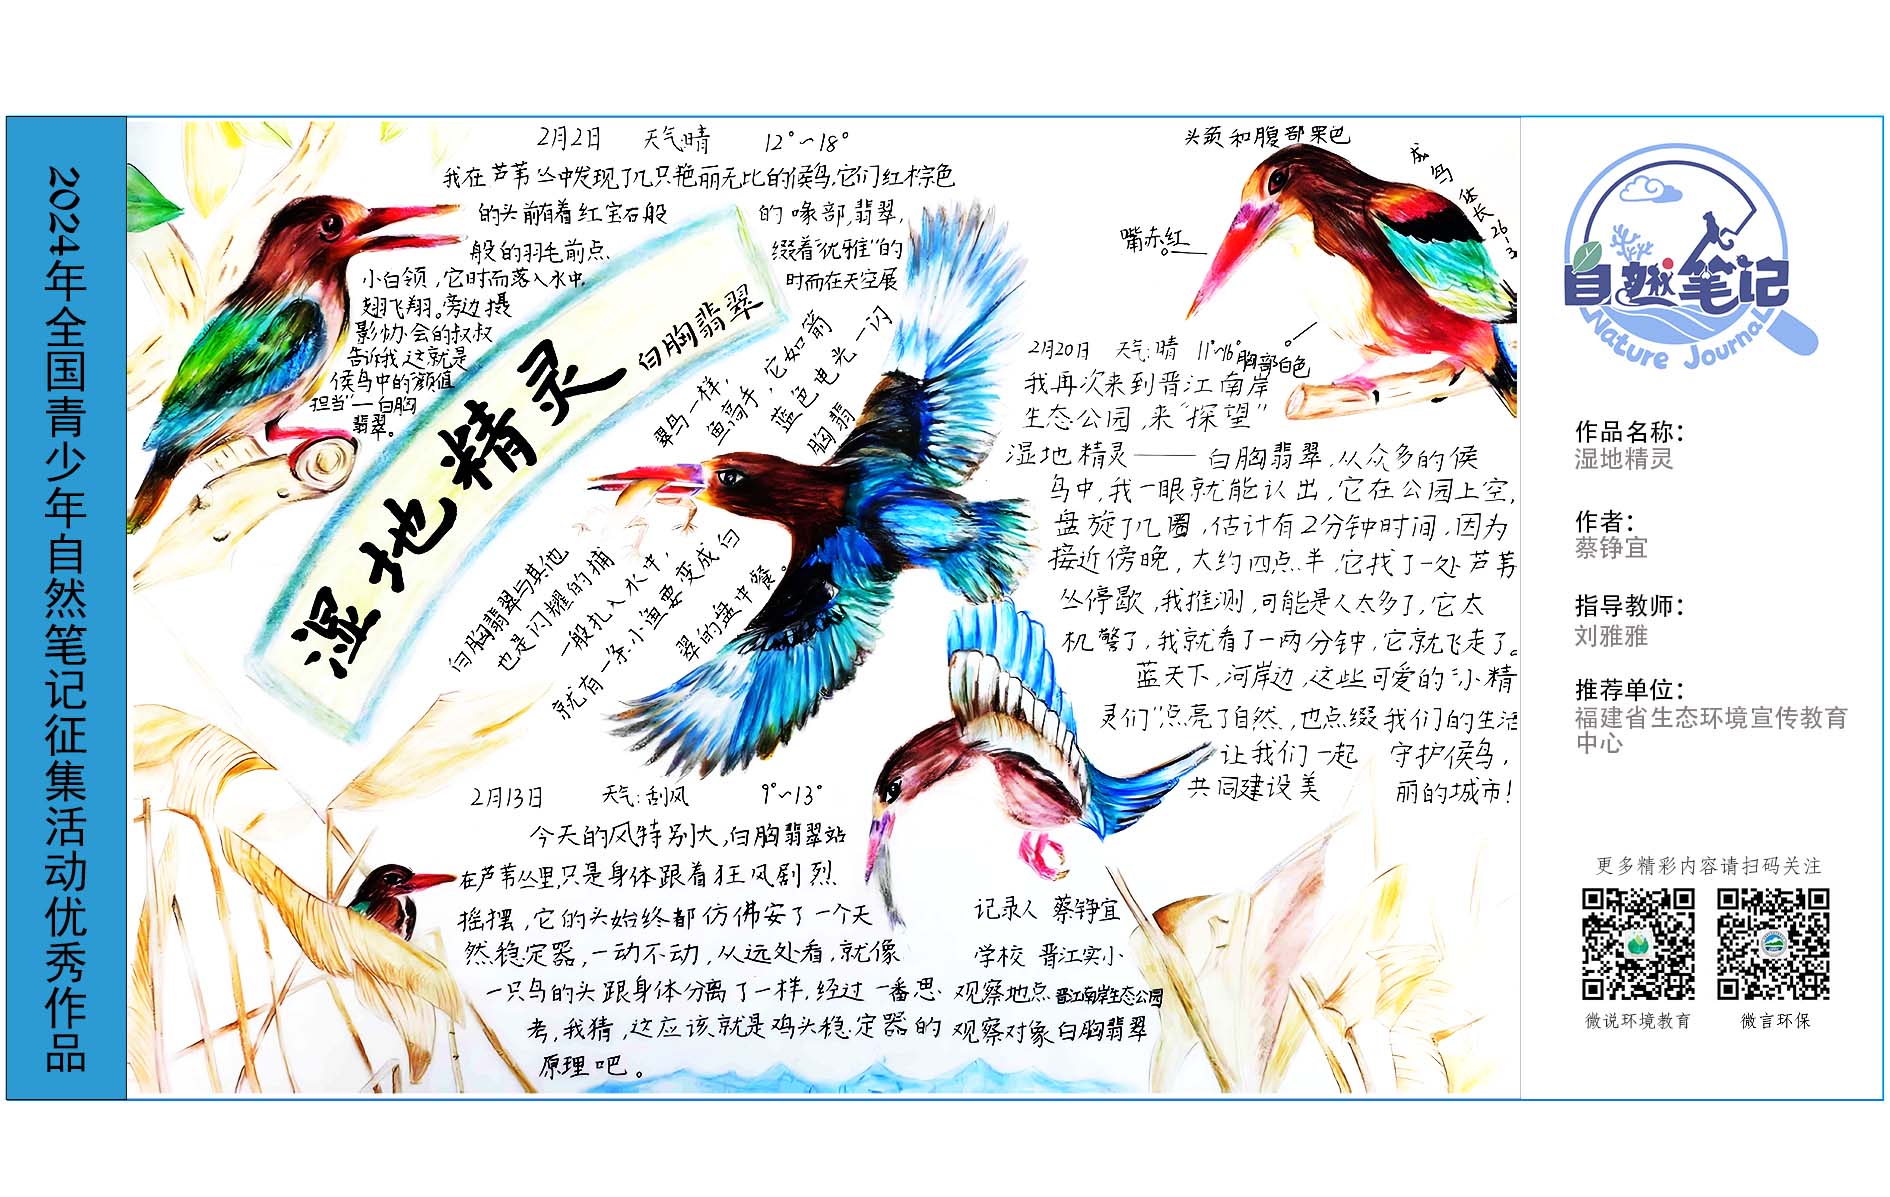 2024年全国青少年自然笔记征集活动优秀作品
2月2日 天气:晴 12°~18°
我在芦苇丛中发现了几只艳丽无比的侯鸟,它们红棕色
的头前有着红宝石般 的喙部,翡翠,
般的羽毛前点 缀着“优雅”的
小白领,它时而落入水中, 时而在天空展
翅飞翔。旁边摄
影协会的叔叔
告诉我,这就是
侯鸟中的“颜值
担当”一白胸
翡翠。
湿地精灵
白胸翡翠
白胸翡翠与其他 翠鸟一样,
也是闪耀的捕 鱼高手,它如箭
一般扎入水中, 蓝色电光一闪
就有一条小鱼要变成白 胸翡
翠的盘中餐。
2月13日 天气:刮风 9°~13°
今天的风特别大,白胸翡翠站
在芦苇丛里,只是身体跟着狂风剧烈
摇摆,它的头始终都仿佛安了一个天
然稳定器,一动不动,从远处看,就像
一只鸟的头跟身体分离了一样,经过一番思
考,我猜,这应该就是鸡头稳定器的
原理吧。
头颈和腹部栗色
成鸟体长26-3
嘴赤红
胸部白色
2月20日 天气:晴 11°~16°
我再次来到晋江南岸
生态公园,来“探望”
湿地精灵——白胸翡翠,从众多的侯
鸟中,我一眼就能认出,它在公园上空,
盘旋了几圈,估计有2分钟时间,因为
接近傍晚,大约四点半,它找了一处芦苇
丛停歇,我推测,可能是人太多了,它太
机警了,我就看了一两分钟,它就飞走了。
蓝天下,河岸边,这些可爱的“小精
灵们”点亮了自然,也点缀我们的生活
让我们一起 守护侯鸟,
共同建设美 丽的城市!
记录人 蔡铮宜
学校 晋江实小
观察地点 晋江南岸生态公园
观察对象 白胸翡翠
自然笔记
Nature Journal
作品名称：
湿地精灵
作者：
蔡铮宜
指导教师：
刘雅雅
推荐单位：
福建省生态环境宣传教育
中心
更多精彩内容请扫码关注
微说环境教育 微言环保